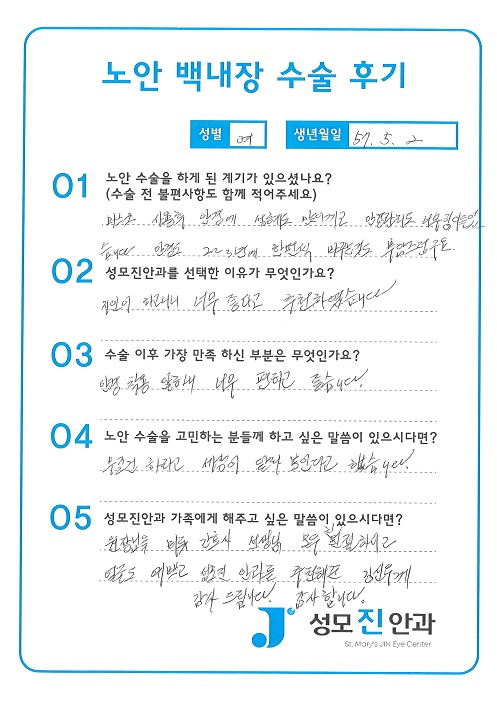 노안 백내장 수술 후기
성별 여 생년월일 57. 5. 2
01 노안 수술을 하게 된 계기가 있으셨나요?
(수술 전 불편사항도 함께 적어주세요)
마스크 사용후 안경에 성에도 안경 너무 힘이들었
습니다 안경도 2~3년에 한번식 바꾸는것도 부담스럽구요.
02 성모진안과를 선택한 이유가 무엇인가요?
지인이 하고나니 너무 좋다고 추천하였습니다
03 수술 이후 가장 만족 하신 부분은 무엇인가요?
안경 착용 안하니 너무 편하고 좋습니다.
04 노안 수술을 고민하는 분들께 하고 싶은 말씀이 있으시다면?
무조건 하라고 세상이 밝다 보인다고 했습니다.
05 성모진안과 가족에게 해주고 싶은 말씀이 있으시다면?
원장님들 간호사 선생님 모두 친절하시고
얼굴도 예쁘고 성모진 안과를 추천해준
감사 드립니다. 감사 합니다.
성모 진 안과
St. Mary's JIN Eye Center